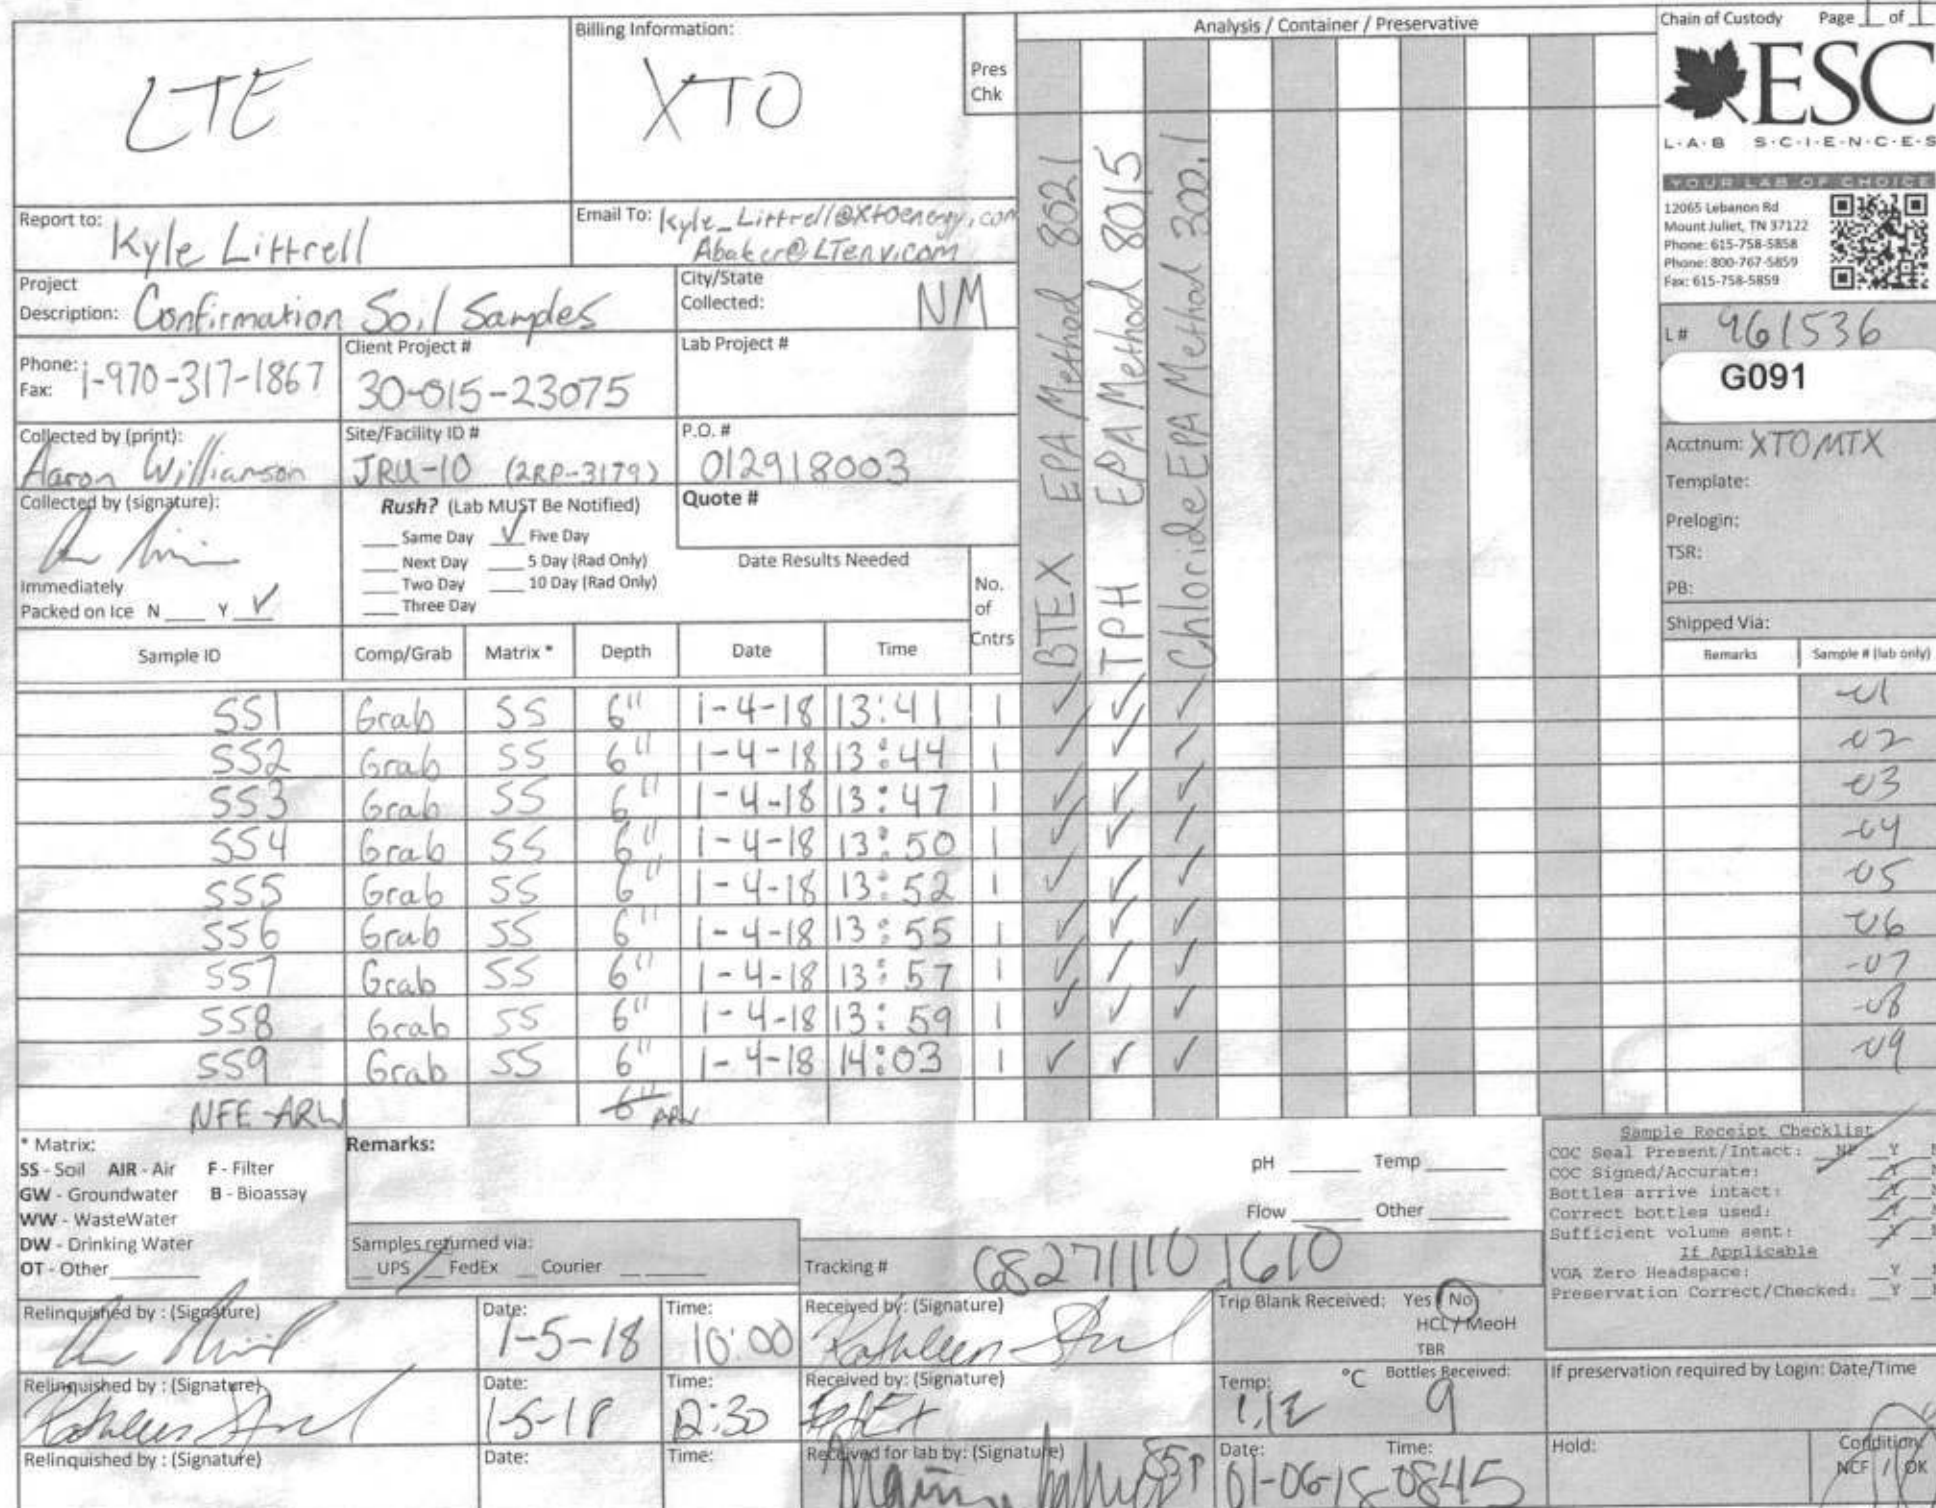 Billing Information:
Analysis / Container / Preservative
Chain of Custody Page 1 of 1
LTE
XTO
Pres
Chk
ESC
L·A·B S·C·I·E·N·C·E·S
YOUR LAB OF CHOICE
12065 Lebanon Rd
Mount Juliet, TN 37122
Phone: 615-758-5858
Phone: 800-767-5859
Fax: 615-758-5859
BTEX EPA Method 8021
TPH EPA Method 8015
Chloride EPA Method 300.1
Report to: Kyle Littrell
Email To: Kyle_Littrell@xtoenergy.com
Abaker@LTenv.com
Project
Description: Confirmation Soil Samples
City/State
Collected: NM
L# 961536
G091
Phone: 1-970-317-1867
Fax:
Client Project #
30-015-23075
Lab Project #
Collected by (print):
Aaron Williamson
Site/Facility ID #
JRU-10 (2RP-3179)
P.O. #
012918003
Acctnum: XTOMTX
Template:
Prelogin:
TSR:
PB:
Shipped Via:
Collected by (signature):
Rush? (Lab MUST Be Notified)
Same Day ✓ Five Day
Next Day 5 Day (Rad Only)
Two Day 10 Day (Rad Only)
Three Day
Quote #
Date Results Needed
No.
of
Cntrs
Immediately
Packed on Ice N ___ Y ✓
Sample ID Comp/Grab Matrix * Depth Date Time Remarks Sample # (lab only)
SS1 Grab SS 6" 1-4-18 13:41 1 ✓ ✓ ✓ -01
SS2 Grab SS 6" 1-4-18 13:44 1 ✓ ✓ ✓ -02
SS3 Grab SS 6" 1-4-18 13:47 1 ✓ ✓ ✓ -03
SS4 Grab SS 6" 1-4-18 13:50 1 ✓ ✓ ✓ -04
SS5 Grab SS 6" 1-4-18 13:52 1 ✓ ✓ ✓ -05
SS6 Grab SS 6" 1-4-18 13:55 1 ✓ ✓ ✓ -06
SS7 Grab SS 6" 1-4-18 13:57 1 ✓ ✓ ✓ -07
SS8 Grab SS 6" 1-4-18 13:59 1 ✓ ✓ ✓ -08
SS9 Grab SS 6" 1-4-18 14:03 1 ✓ ✓ ✓ -09
NFE-ARW 6" ARW
* Matrix:
SS - Soil AIR - Air F - Filter
GW - Groundwater B - Bioassay
WW - WasteWater
DW - Drinking Water
OT - Other
Remarks:
pH ___ Temp ___
Flow ___ Other ___
Sample Receipt Checklist
COC Seal Present/Intact: NP Y N
COC Signed/Accurate: Y N
Bottles arrive intact: Y N
Correct bottles used: Y N
Sufficient volume sent: Y N
If Applicable
VOA Zero Headspace: Y N
Preservation Correct/Checked: Y N
Samples returned via:
UPS FedEx Courier
Tracking # 68271110 1610
Relinquished by : (Signature)
Date: 1-5-18
Time: 10:00
Received by: (Signature)
Kathleen
Trip Blank Received: Yes / No
HCL / MeoH
TBR
Relinquished by : (Signature)
Kathleen
Date: 1-5-18
Time: 12:30
Received by: (Signature)
FedEx
Temp: °C
Bottles Received: 9
If preservation required by Login: Date/Time
Relinquished by : (Signature)
Date:
Time:
Received for lab by: (Signature)
Date: 01-06-18
Time: 0845
Hold:
Condition:
NCF / OK